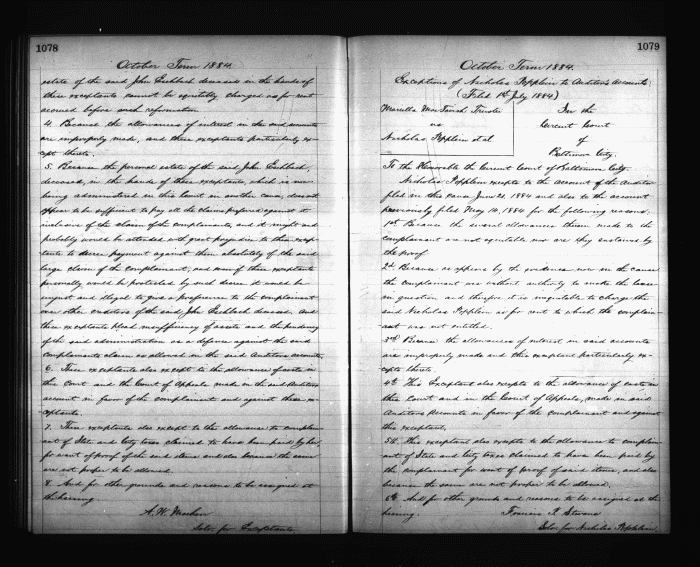 1078
October Term 1884.
estate of the said John Eschbach deceased in the hands of
these exceptants cannot be equitably charged as for rent
accrued before such reformation
4. Because the allowances of interest in the said accounts
are improperly made, and these exceptants particularly ex-
cept thereto.
5. Because the personal estate of the said John Eschbach,
deceased, in the hands of these exceptants, which is now
being administered in this Court in another cause, does not
appear to be sufficient to pay all the claims preferred against it
inclusive of the claim of the complainant, and it might and
probably would be attended with great prejudice to these excep-
tants to decree payment against them absolutely of the said
large claim of the complainant, and even if these exceptants
personally would be protected by such decree it would be
unjust and illegal to give a preference to the complainant
over other creditors of the said John Eschbach deceased. And
these exceptants plead insufficiency of assets and the pendency
of the said administration as a defence against the said
complainants claim as allowed in the said Auditors accounts
6. These exceptants also except to the allowance of costs in
this Court and the Court of Appeals made in the said Auditors
account in favor of the complainant and against these ex-
ceptants.
7. These exceptants also except to the allowance to complain-
ant of State and City taxes claimed to have been paid by her
for want of proof of the said items and also because the same
are not proper to be allowed.
8. And for other grounds and reasons to be assigned at
the hearing
A. W. Machen
Solr. for Exceptants
1079
October Term 1884.
Exceptions of Nicholas Popplein to Auditor's Accounts.
(Filed 1st July 1884)
Marcella MacTavish Trustee
vs
Nicholas Popplein et al
In the
Circuit Court
of
Baltimore City.
To the Honorable the Circuit Court of Baltimore City.
Nicholas Popplein excepts to the account of the Auditor
filed in this cause June 21, 1884 and also to the account
previously filed May 14, 1884 for the following reasons.
1st Because the several allowances therein made to the
complainant are not equitable nor are they sustained by
the proof
2d Because as appears by the evidence now in the cause
the complainant was without authority to make the lease
in question and therefore it is inequitable to charge the
said Nicholas Popplein as for rent to which the complain-
ant was not entitled.
3rd Because the allowances of interest in said accounts
are improperly made and this exceptant particularly ex-
cepts thereto.
4th This Exceptant also excepts to the allowance of costs in
this Court and in the Court of Appeals, made in said
Auditors Accounts in favor of the complainant and against
this exceptant,
5th This exceptant also excepts to the allowance to complain-
ant of State and City taxes claimed to have been paid by
the complainant for want of proof of said items, and also
because the same are not proper to be allowed.
6th And for other grounds and reasons to be assigned at the
hearing.
Francis P. Stevens
Solr. for Nicholas Popplein